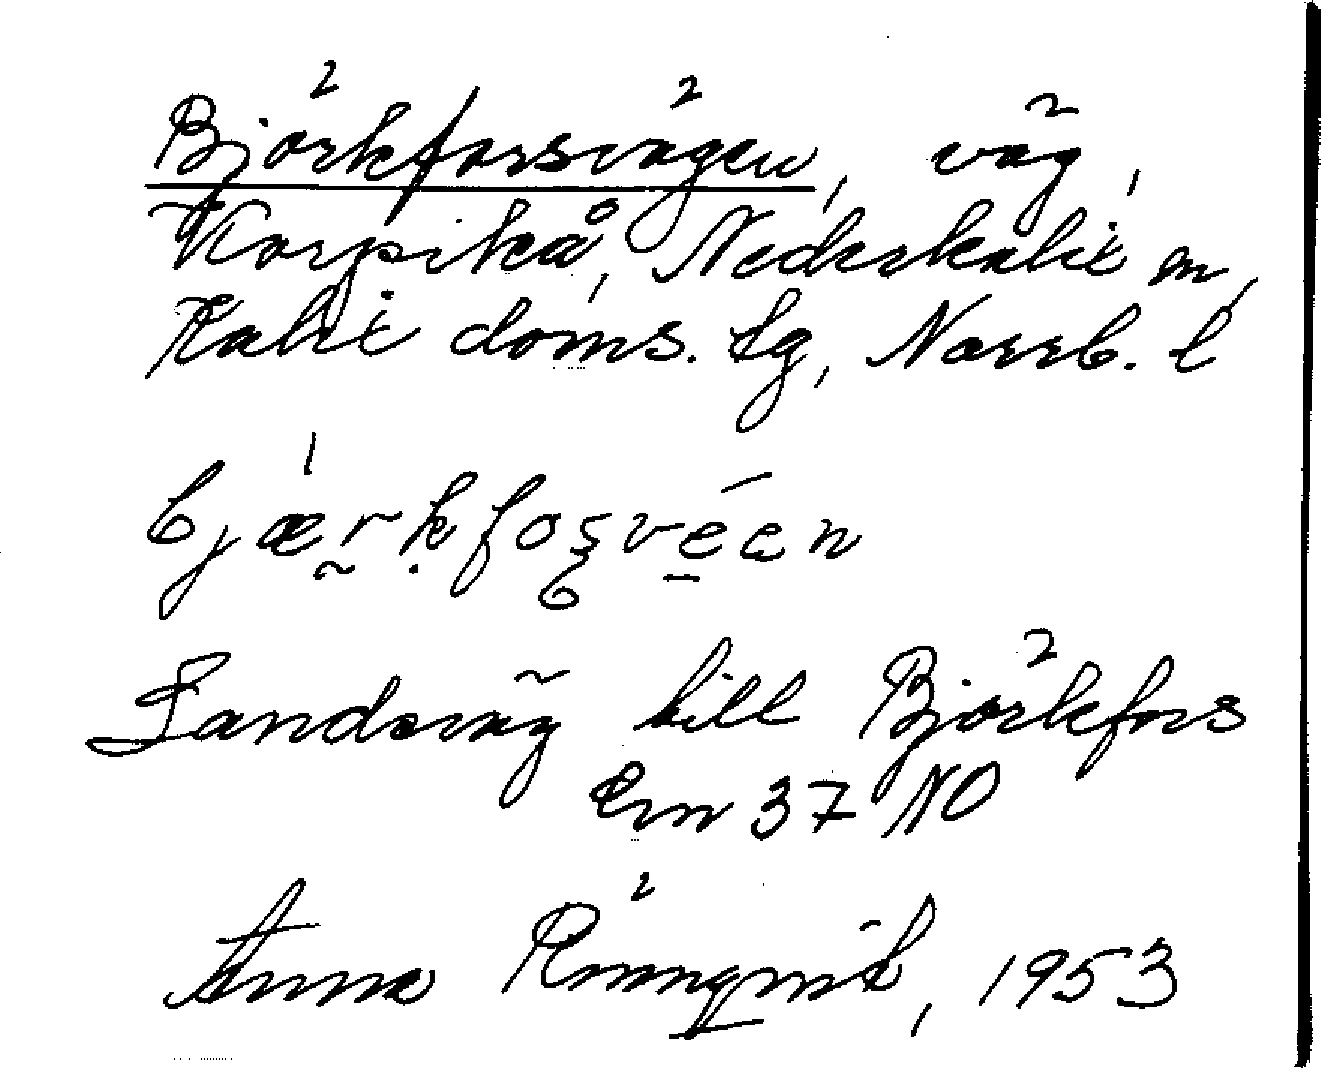 Björkforsvägen, väg,
Korpikå, Nederkalix sn,
Kalix doms. tg, Norrb. l
bjærkfosvéen
Landsväg till Björkfors
Em 37 NO
Anna Rönnqvist, 1953